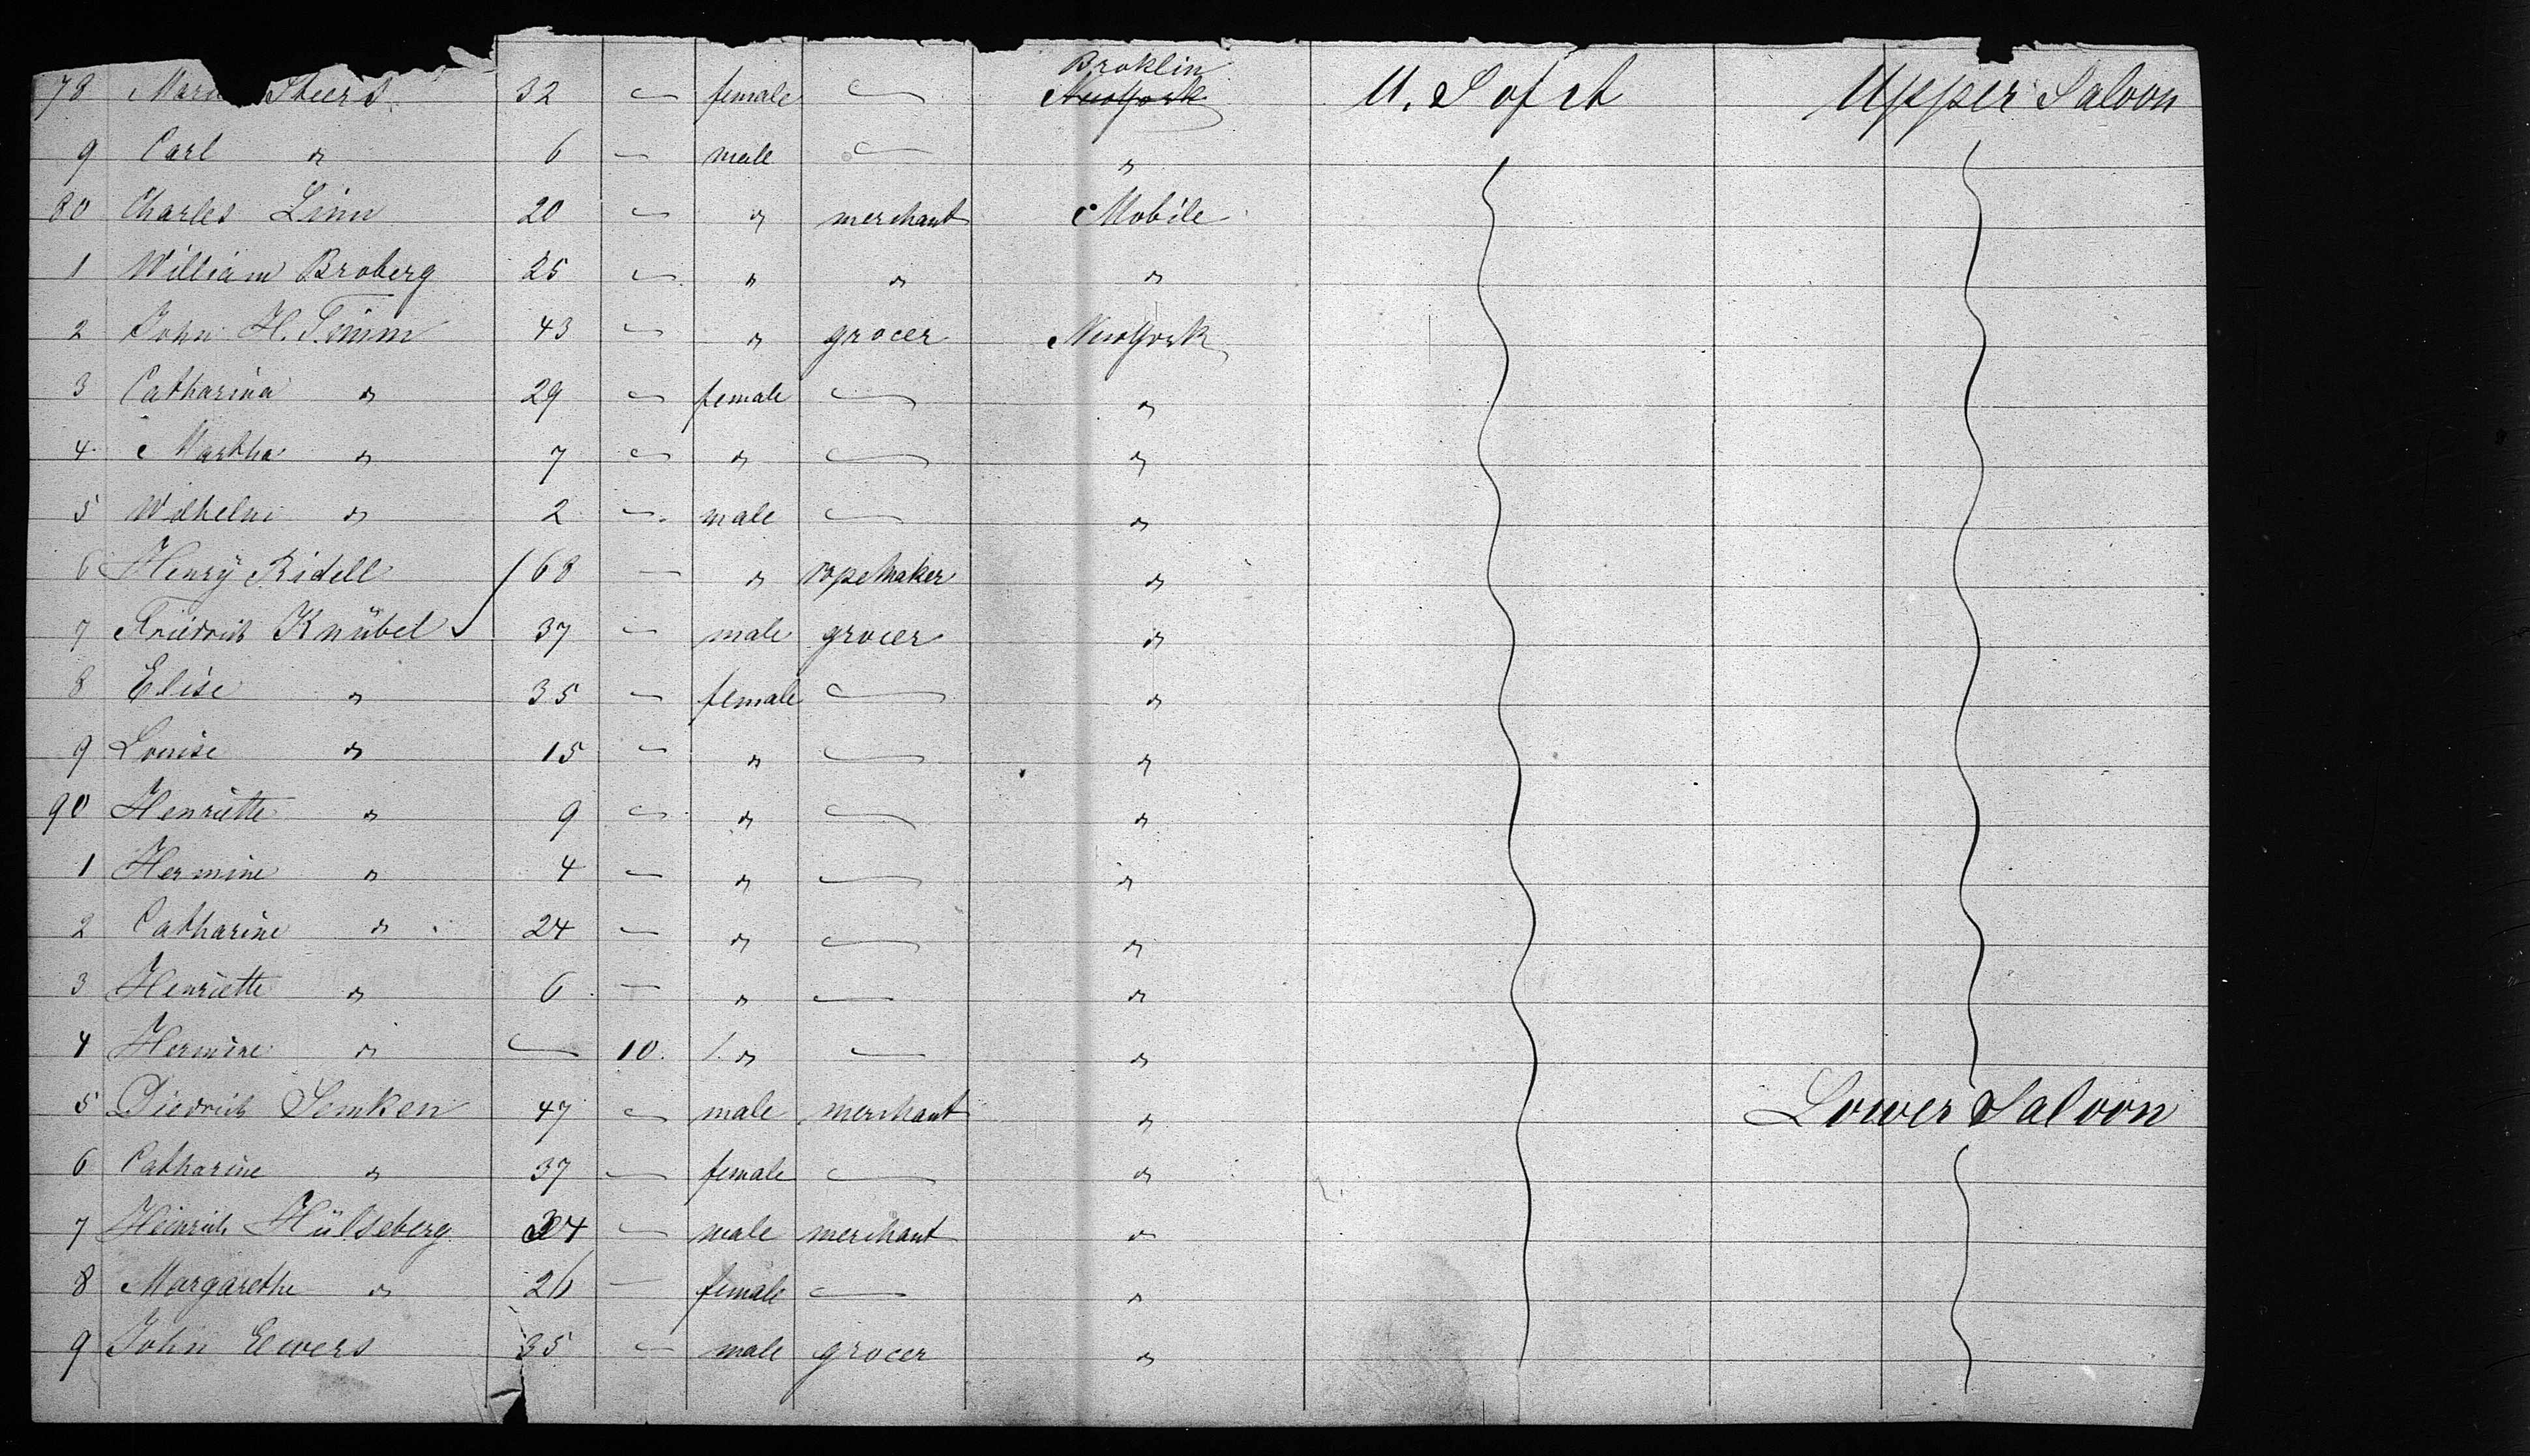 Broklin
78 Mari Steers 32 — female — ~~New York~~ U. S of A Upper Saloon
9 Carl " 6 — male — "
80 Charles Linn 20 — " merchant Mobile
1 William Broberg 25 — " " "
2 John H. Timm 43 — " grocer New York
3 Catharina " 29 — female — "
4 Martha " 7 — " — "
5 Wilhelm " 2 — male — "
6 Henry Ridell 68 — " Ropemaker "
7 Friedrich Knübel 37 — male grocer "
8 Elise " 35 — female — "
9 Louise " 15 — " — "
90 Henriette " 9 — " — "
1 Hermine " 4 — " — "
2 Catharine " 24 — " — "
3 Henriette " 6 — " — "
4 Hermine " — 10 " — "
5 Diedrich Semken 47 — male merchant " Lower Saloon
6 Catharine " 37 — female — "
7 Heinrich Hülseberg 34 — male merchant "
8 Margarethe " 26 — female — "
9 John Ewers 35 — male grocer "